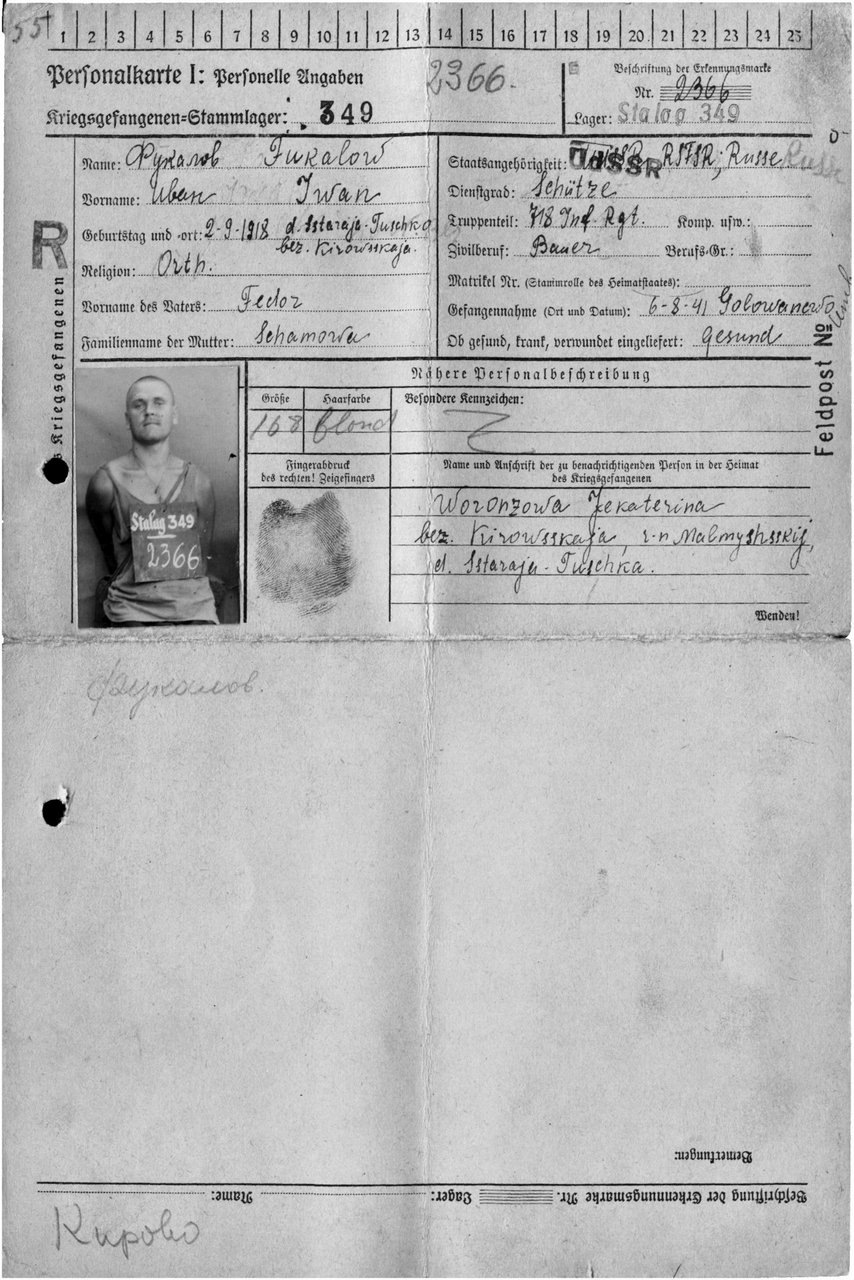 55
1 2 3 4 5 6 7 8 9 10 11 12 13 14 15 16 17 18 19 20 21 22 23 24 25
Personalkarte I: Personelle Angaben
2366.
Kriegsgefangenen-Stammlager: 349
Beschriftung der Erkennungsmarke
Nr. 2366
Lager: Stalag 349
Name: Фукалов Fukalow
Vorname: Иван Iwan
Geburtstag und -ort: 2-9-1918 d. Sstaraja-Tuschka
bez. Kirowsskaja.
Religion: Orth.
Vorname des Vaters: Fedor
Familienname der Mutter: Schamowa
Staatsangehörigkeit: UdSSR RSFSR, Russe
Dienstgrad: Schütze
Truppenteil: 718 Inf. Rgt. Komp. usw.:
Zivilberuf: Bauer Berufs-Gr.:
Matrikel Nr. (Stammrolle des Heimatstaates):
Gefangennahme (Ort und Datum): 6-8-41 Golowanewo
Ob gesund, krank, verwundet eingeliefert: gesund
R
Kriegsgefangenen
Feldpost №
Nähere Personalbeschreibung
Größe Haarfarbe Besondere Kennzeichen:
168 blond
Fingerabdruck
des rechten! Zeigefingers
Name und Anschrift der zu benachrichtigenden Person in der Heimat
des Kriegsgefangenen
Woronzowa Jekaterina
bez. Kirowsskaja, r-n Malmyshsskij,
d. Sstaraja-Tuschka.
Stalag 349
2366
Wenden!
Фукалов.
Bemerkungen:
Beschriftung der Erkennungsmarke Nr. Lager: Name:
Кирово